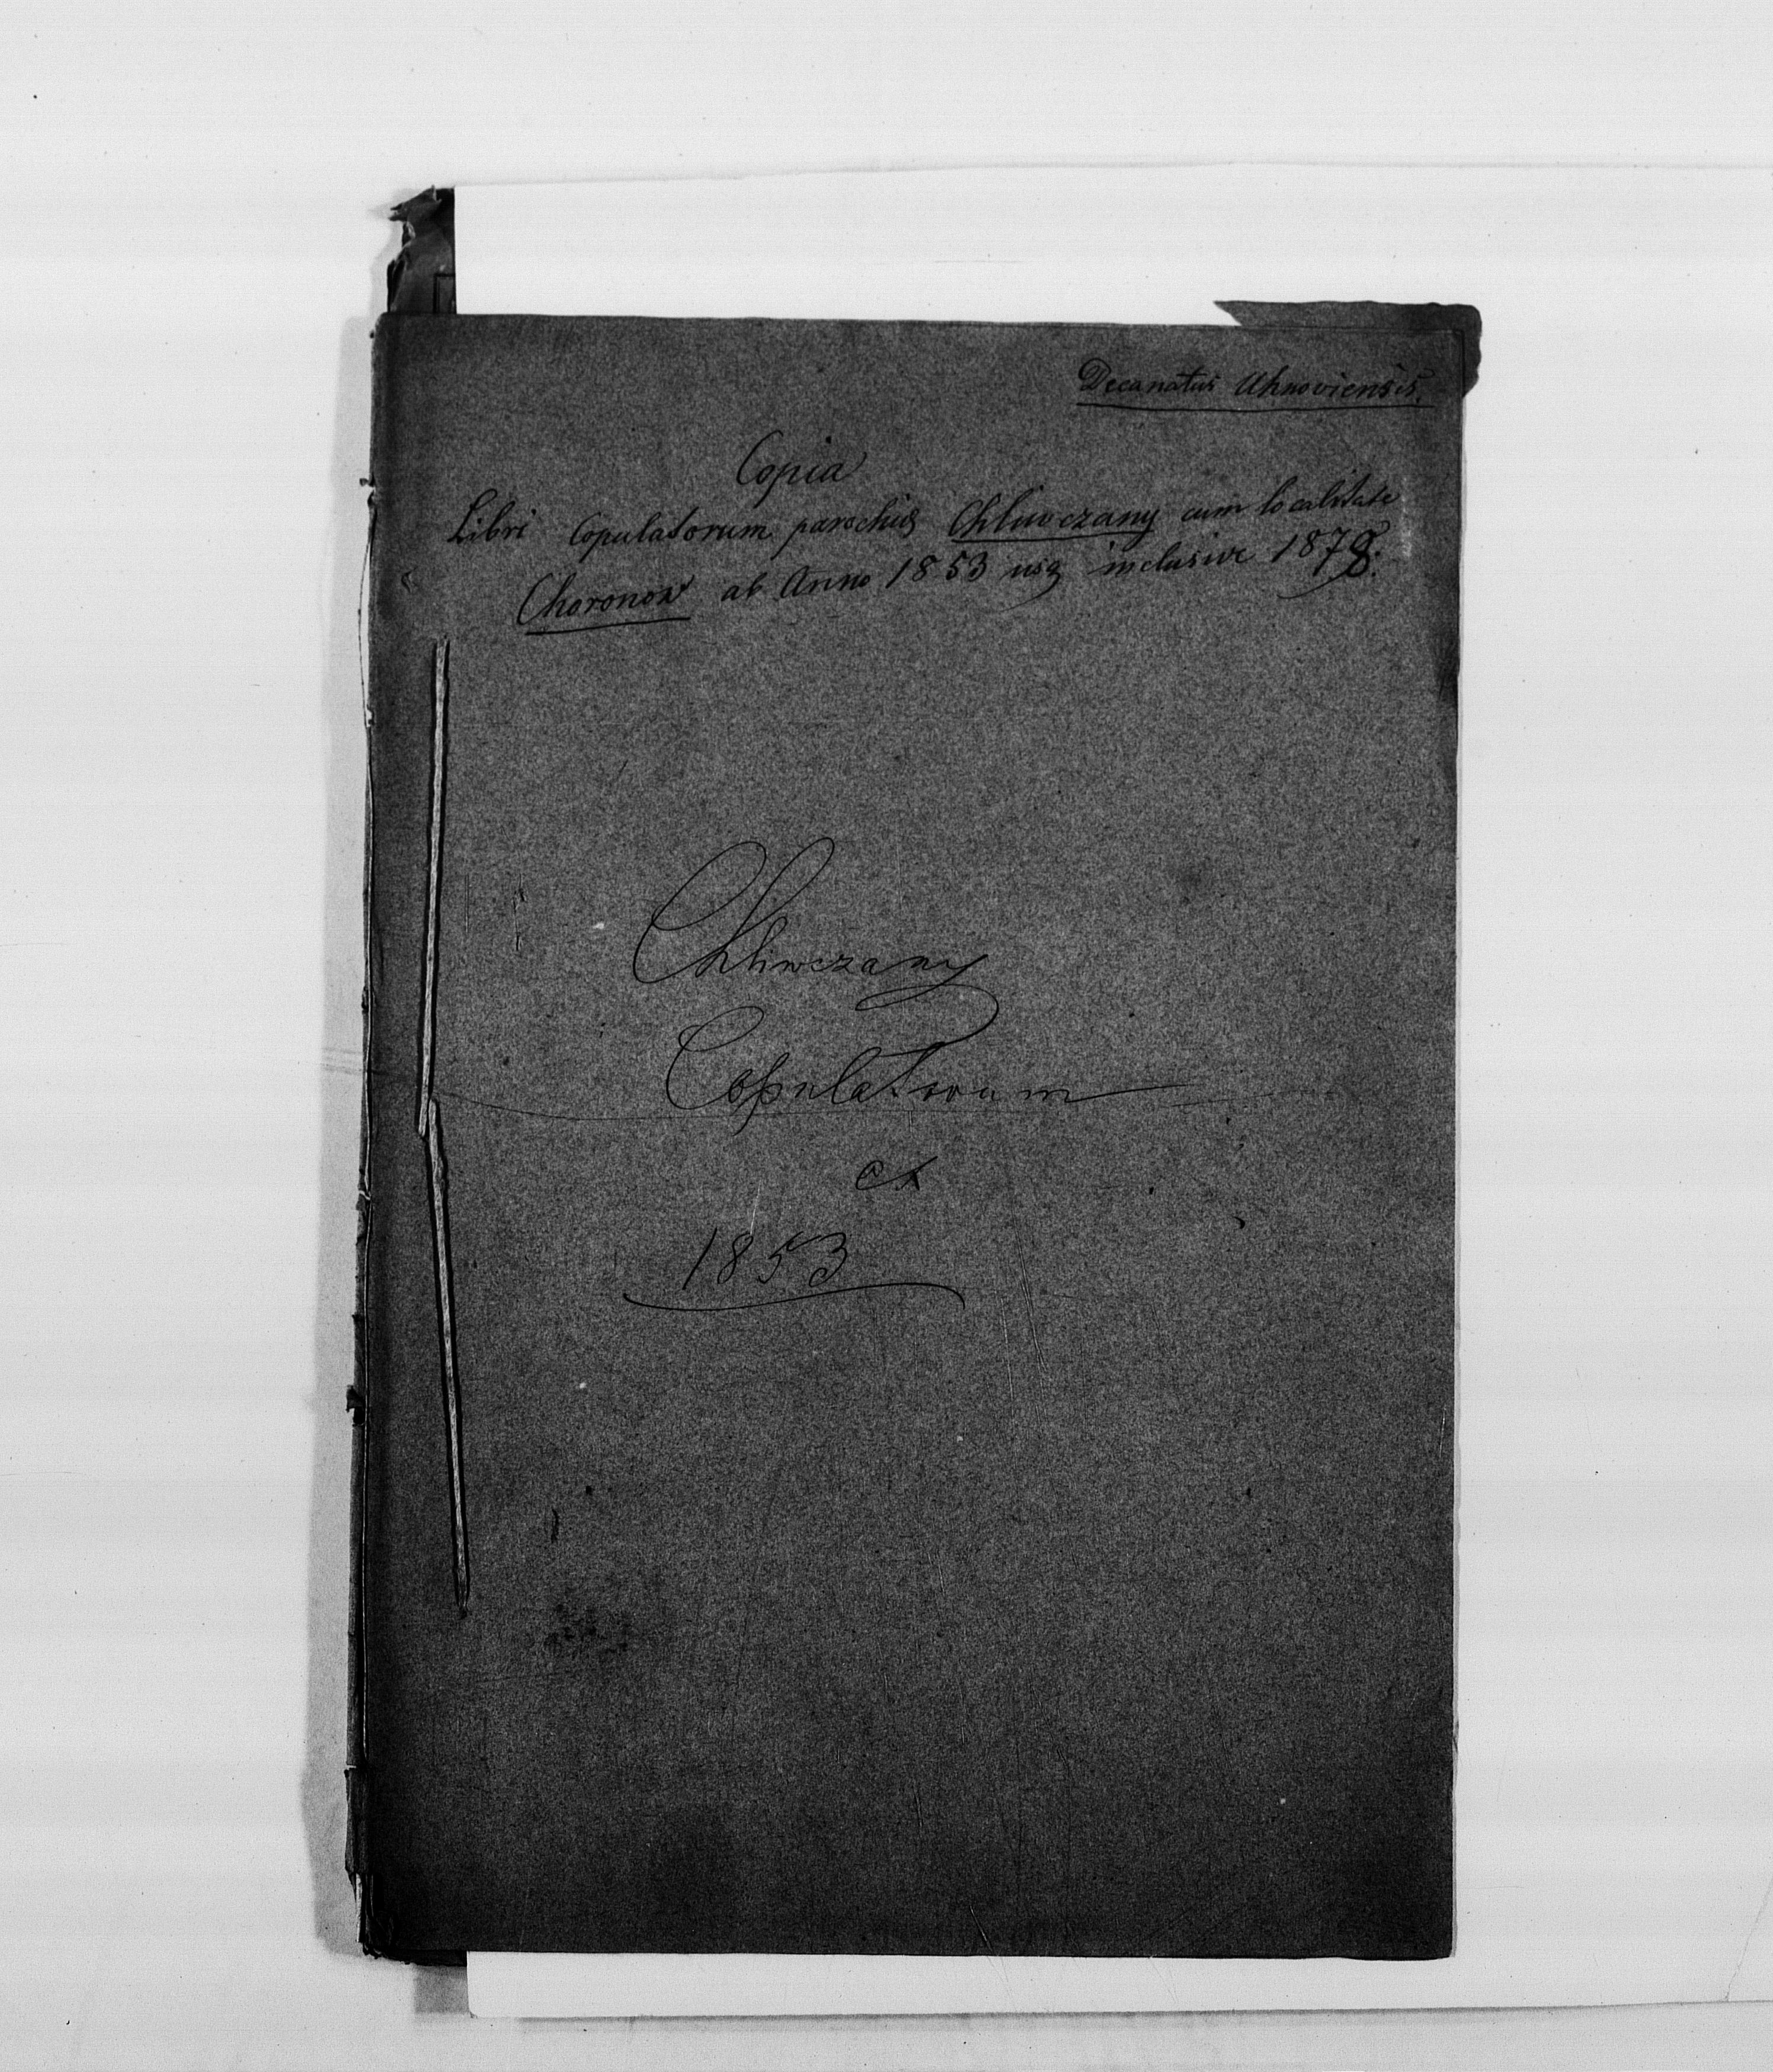 Decanatus Uhnoviensis.
Copia
Libri Copulatorum parochiæ Chliwczany cum localitate
Choronow ab Anno 1853 usq inclusive
Chliwczany
Copulatorum
ex
1853